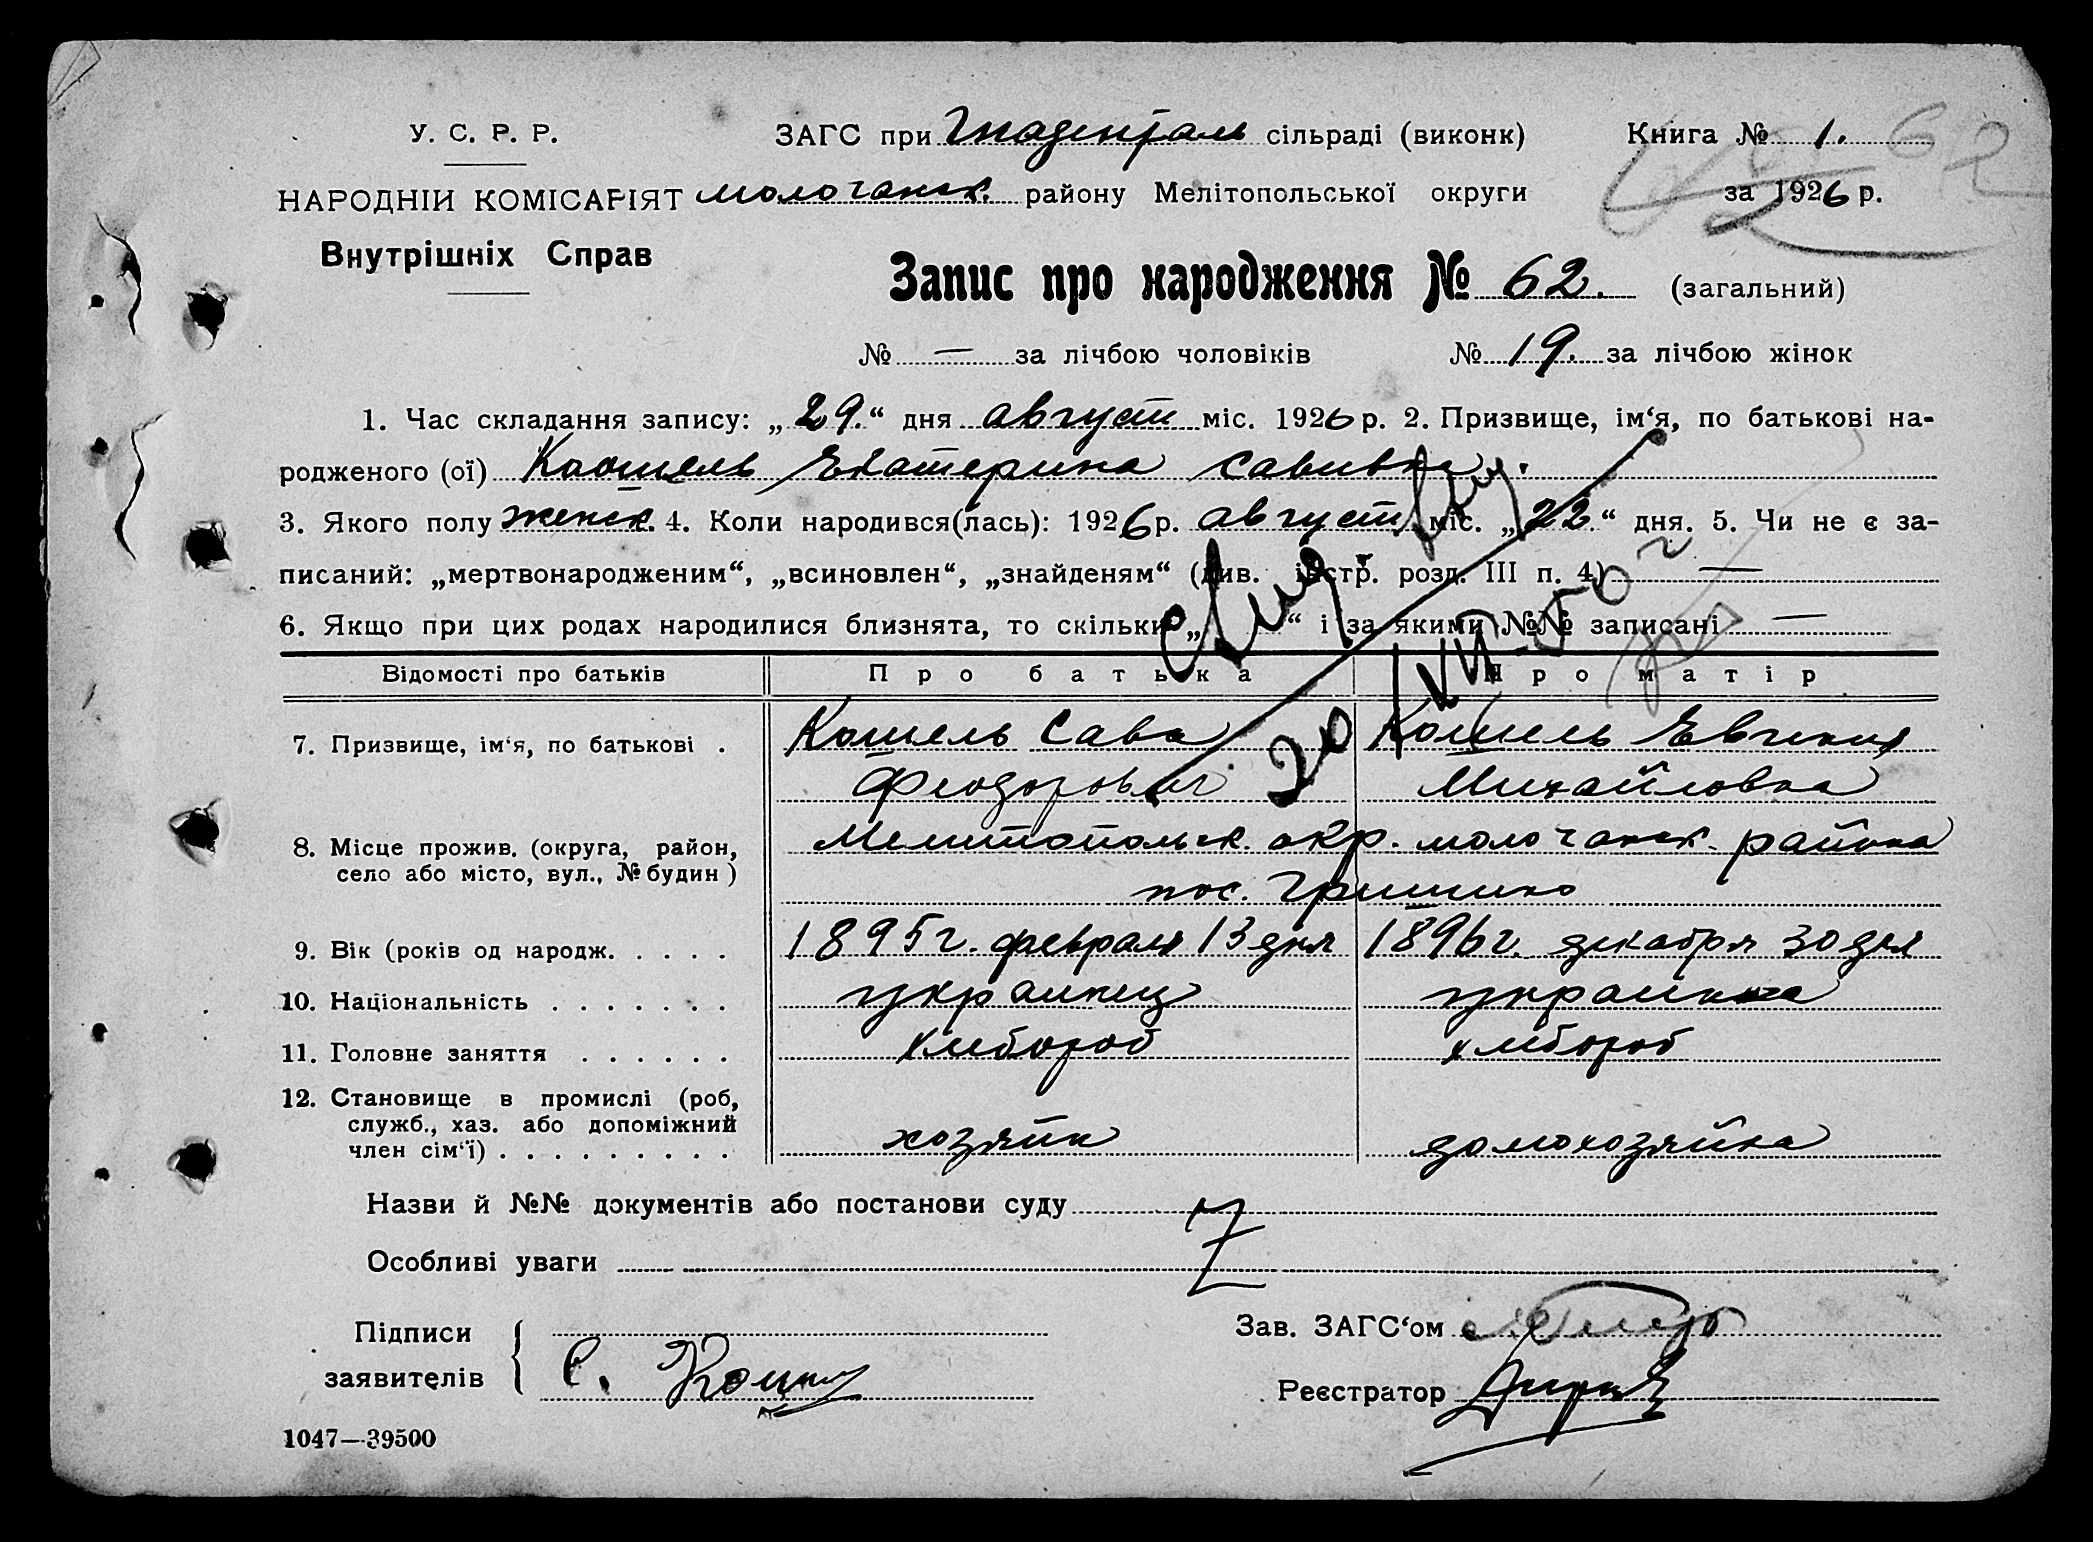 У. С. Р. Р.
НАРОДНІЙ КОМІСАРІЯТ
Внутрішніх Справ
ЗАГС при Гнаденталь сільраді (виконк)
Молочанск. району Мелітопольської округи
Книга № 1.
за 1926 р.
62
Запис про народження № 62. (загальний)
№ — за лічбою чоловіків № 19. за лічбою жінок
1. Час складання запису: „29.“ дня август міс. 1926 р. 2. Призвище, ім‘я, по батькові на-
родженого (ої) Кошель Екатерина Савивна.
3. Якого полу женск. 4. Коли народився(лась): 1926 р. август міс. „22“ дня. 5. Чи не є за-
писаний: „мертвонародженим“, „всиновлен“, „знайденям“ (див. інстр. розд. III п. 4) —
6. Якщо при цих родах народилися близнята, то скільки „ “ і за якими №№ записані —
Відомості про батьків Про батька Про матір
7. Призвище, ім‘я, по батькові . Кошель Сава Кошель Евгения
Феодорович Михайловна
8. Місце прожив. (округа, район,
село або місто, вул., № будин) Мелитопольск. окр. Молочанск. района
пос. Гришино
9. Вік (років од народж. . . . . 1895 г. февраля 13 дня 1896 г. декабря 30 дня
10. Національність . . . . . . . украинец украинка
11. Головне заняття . . . . . . хлебороб хлебороб
12. Становище в промислі (роб,
служб., хаз. або допоміжний
член сім‘ї) . . . . . . . . . хозяин домохозяйка
Назви й №№ документів або постанови суду
Особливі уваги
Підписи
заявителів С. Кошель
Зав. ЗАГС‘ом
Реєстратор
1047—39500